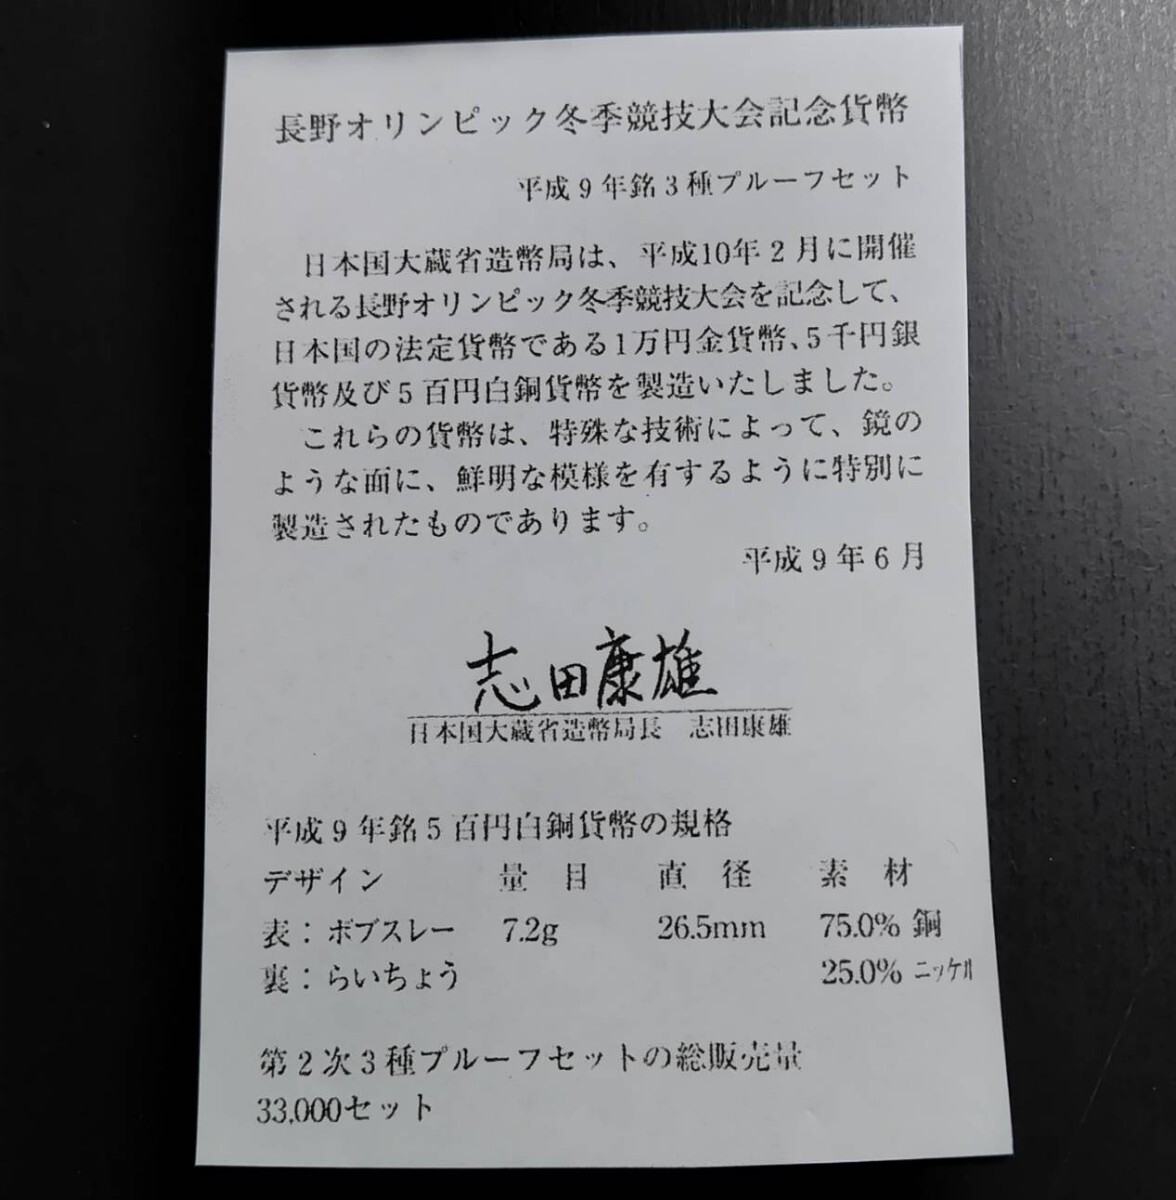 長野オリンピック冬季競技大会記念貨幣
平成9年銘3種プルーフセット
日本国大蔵省造幣局は、平成10年2月に開催
される長野オリンピック冬季競技大会を記念して、
日本国の法定貨幣である1万円金貨幣、5千円銀
貨幣及び5百円白銅貨幣を製造いたしました。
これらの貨幣は、特殊な技術によって、鏡の
ような面に、鮮明な模様を有するように特別に
製造されたものであります。
平成9年6月
志田康雄
日本国大蔵省造幣局長 志田康雄
平成9年銘5百円白銅貨幣の規格
デザイン 量目 直径 素材
表：ボブスレー 7.2g 26.5mm 75.0% 銅
裏：らいちょう 25.0% ニッケル
第2次3種プルーフセットの総販売量
33,000セット